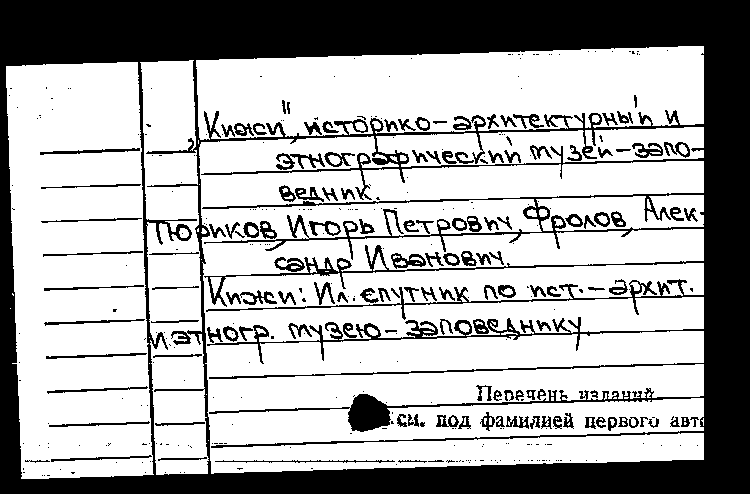 „Кижи", историко-архитектурный и
этнографический музей-запо-
ведник.
Тюриков, Игорь Петрович, Фролов, Алек-
сандр Иванович.
Кижи: Ил. спутник по ист.-архит.
и этногр. музею-заповеднику.
Перечень изданий
см. под фамилией первого авто